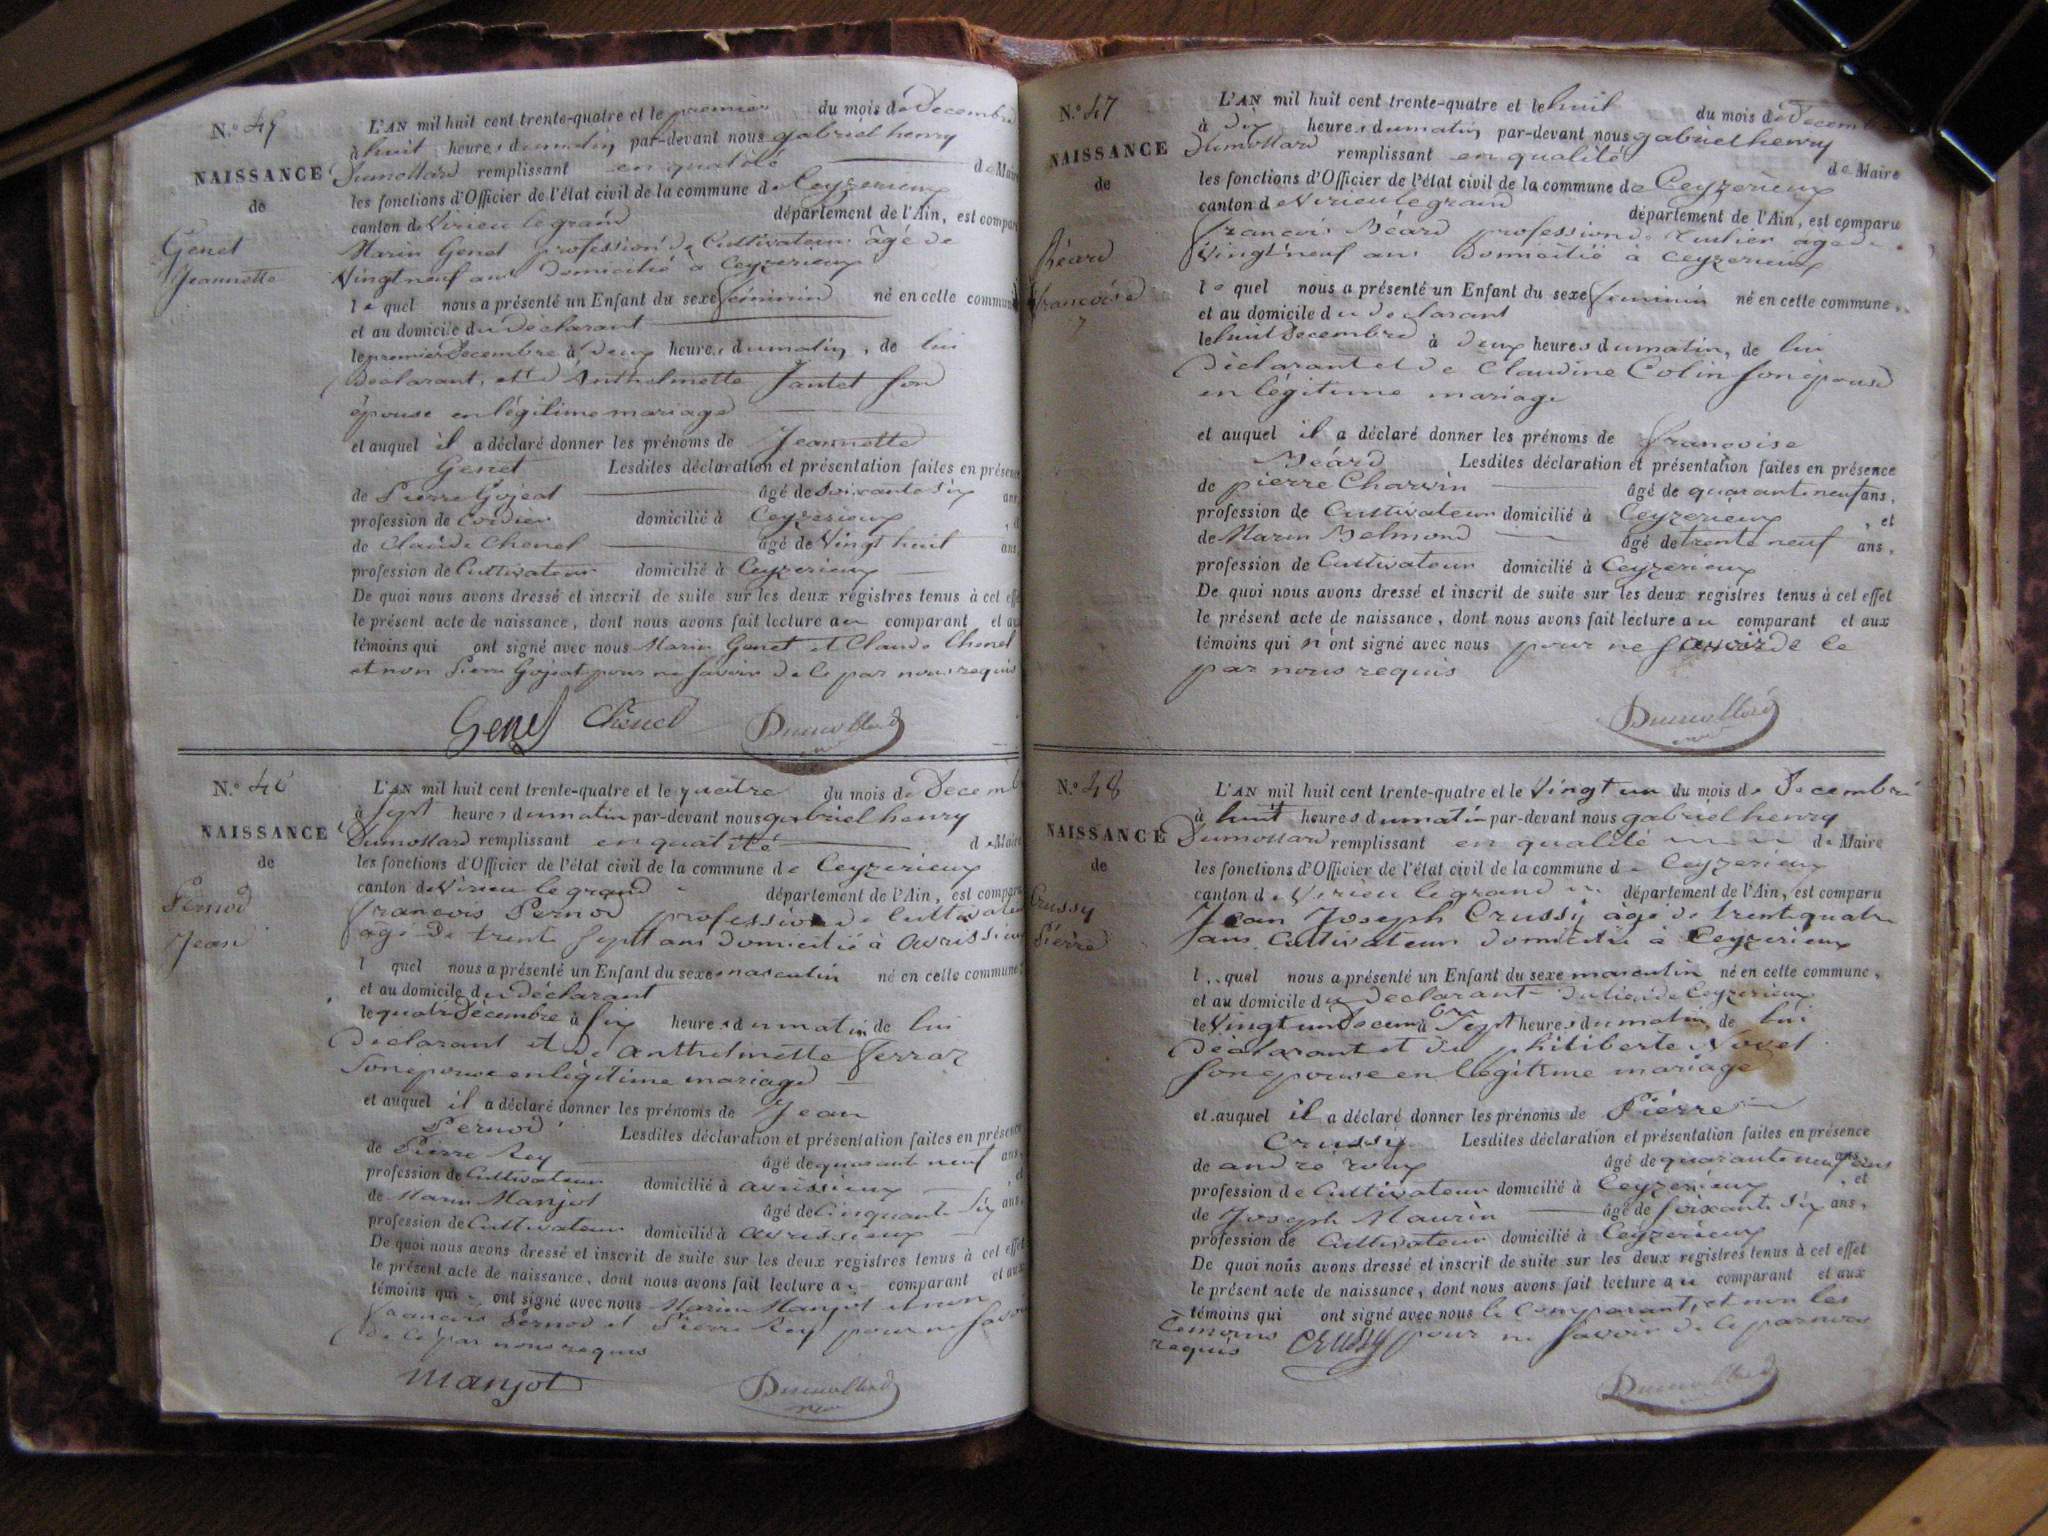 N.º 45
NAISSANCE
de
Genet
Jeannette
L'AN mil huit cent trente-quatre et le premier du mois de Decembre
à huit heures du matin par-devant nous gabriel henry
Dumollard remplissant en qualité de Maire
les fonctions d'Officier de l'état civil de la commune de Ceyzerieux
canton de Virieu le grand département de l'Ain, est comparu
Marin Genet profession de Cultivateur âgé de
Vingt neuf ans domicilié à Ceyzerieux
le quel nous a présenté un Enfant du sexe féminin né en cette commune
et au domicile du déclarant
le premier Decembre à deux heures du matin, de lui
Déclarant, et d'Anthelmette Jantet son
épouse en légitime mariage
et auquel il a déclaré donner les prénoms de Jeannette
Genet Lesdites déclaration et présentation faites en présence
de Pierre Gojeat âgé de soixante six ans
profession de Cordier domicilié à Ceyzerieux, et
de Claude Chenel âgé de Vingt huit ans,
profession de Cultivateur domicilié à Ceyzerieux
De quoi nous avons dressé et inscrit de suite sur les deux registres tenus à cet effet
le présent acte de naissance, dont nous avons fait lecture au comparant et aux
témoins qui ont signé avec nous Marin Genet et Claude Chenel
et non Pierre Gojeat pour ne savoir de ce par nous requis
Genet Chenel Dumollard
N.º 46
NAISSANCE
de
Pernod
Jean
L'AN mil huit cent trente-quatre et le quatre du mois de Decemb
à sept heures du matin par-devant nous gabriel henry
Dumollard remplissant en qualité de Maire
les fonctions d'Officier de l'état civil de la commune de Ceyzerieux
canton de Virieu le grand département de l'Ain, est comparu
francois Pernod profession de Cultivateur
agé de trente sept ans domicilié à avrissieux
l quel nous a présenté un Enfant du sexe masculin né en cette commune
et au domicile du déclarant
le quatre Décembre à six heures du matin de lui
Déclarant et de anthelmette ferraz
son epouse en légitime mariage
et auquel il a déclaré donner les prénoms de Jean
Pernod Lesdites déclaration et présentation faites en présence
de Pierre Rey âgé de quarante neuf ans,
profession de Cultivateur domicilié à avrissieux, et
de Marin Manjot âgé de Cinquante six ans,
profession de Cultivateur domicilié à avrissieux
De quoi nous avons dressé et inscrit de suite sur les deux registres tenus à cet effet
le présent acte de naissance, dont nous avons fait lecture au comparant et aux
témoins qui ont signé avec nous Marin Manjot et non
francois Pernod et Pierre Rey pour ne savoir
de ce par nous requis
Manjot Dumollard
N.º 47
NAISSANCE
de
Béard
francoise
L'AN mil huit cent trente-quatre et le huit du mois de Decembre
à dix heures du matin par-devant nous gabriel henry
Dumollard remplissant en qualité de Maire
les fonctions d'Officier de l'état civil de la commune de Ceyzerieux
canton de Virieu le grand département de l'Ain, est comparu
francois Béard profession de agé de
Vingt neuf ans Domicilié a Ceyzerieux
le quel nous a présenté un Enfant du sexe feminin né en cette commune,
et au domicile du declarant
le huit Decembre à deux heures du matin, de lui
Déclarant et de Claudine Colin son épouse
en légitime mariage
et auquel il a déclaré donner les prénoms de francoise
Béard Lesdites déclaration et présentation faites en présence
de pierre Charvin âgé de quarante neuf ans,
profession de Cultivateur domicilié à Ceyzerieux, et
de Marin Belmond âgé de trente neuf ans,
profession de Cultivateur domicilié à Ceyzerieux
De quoi nous avons dressé et inscrit de suite sur les deux registres tenus à cet effet
le présent acte de naissance, dont nous avons fait lecture au comparant et aux
témoins qui n'ont signé avec nous pour ne savoir de ce
par nous requis
Dumollard
N.º 48
NAISSANCE
de
Crussy
Pierre
L'AN mil huit cent trente-quatre et le Vingt un du mois de Decembre
à huit heures du matin par-devant nous gabriel henry
Dumollard remplissant en qualité de Maire
les fonctions d'Officier de l'état civil de la commune de Ceyzerieux
canton de Virieu le grand département de l'Ain, est comparu
Jean Joseph Crussy âgé de trente quatre
ans Cultivateur domicilié à Ceyzerieux
l quel nous a présenté un Enfant du sexe masculin né en cette commune,
et au domicile du declarant du lieu de Ceyzerieux
le Vingt un Decembre à Sept heures du matin, de lui
Déclarant et de philiberte Novel
son epouse en légitime mariage
et auquel il a déclaré donner les prénoms de Piérre
Crussy Lesdites déclaration et présentation faites en présence
de andré roux âgé de quarante neuf ans
profession de Cultivateur domicilié à Ceyzerieux, et
de Joseph Maurin âgé de soixante six ans,
profession de Cultivateur domicilié à Ceyzerieux
De quoi nous avons dressé et inscrit de suite sur les deux registres tenus à cet effet
le présent acte de naissance, dont nous avons fait lecture au comparant et aux
témoins qui ont signé avec nous le Comparant, et non les
temoins pour ne savoir de ce par nous
requis Crussy
Dumollard